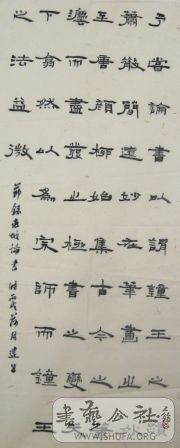 予嘗論書以謂鍾王之
蕭散簡遠妙在筆畫之
至唐顏柳始集古今之
而盡發之極書之變
下翕然以為宗師而鐘王
之法益微
節錄東坡論書
书艺公社
WWW.ISHUFA.ORG